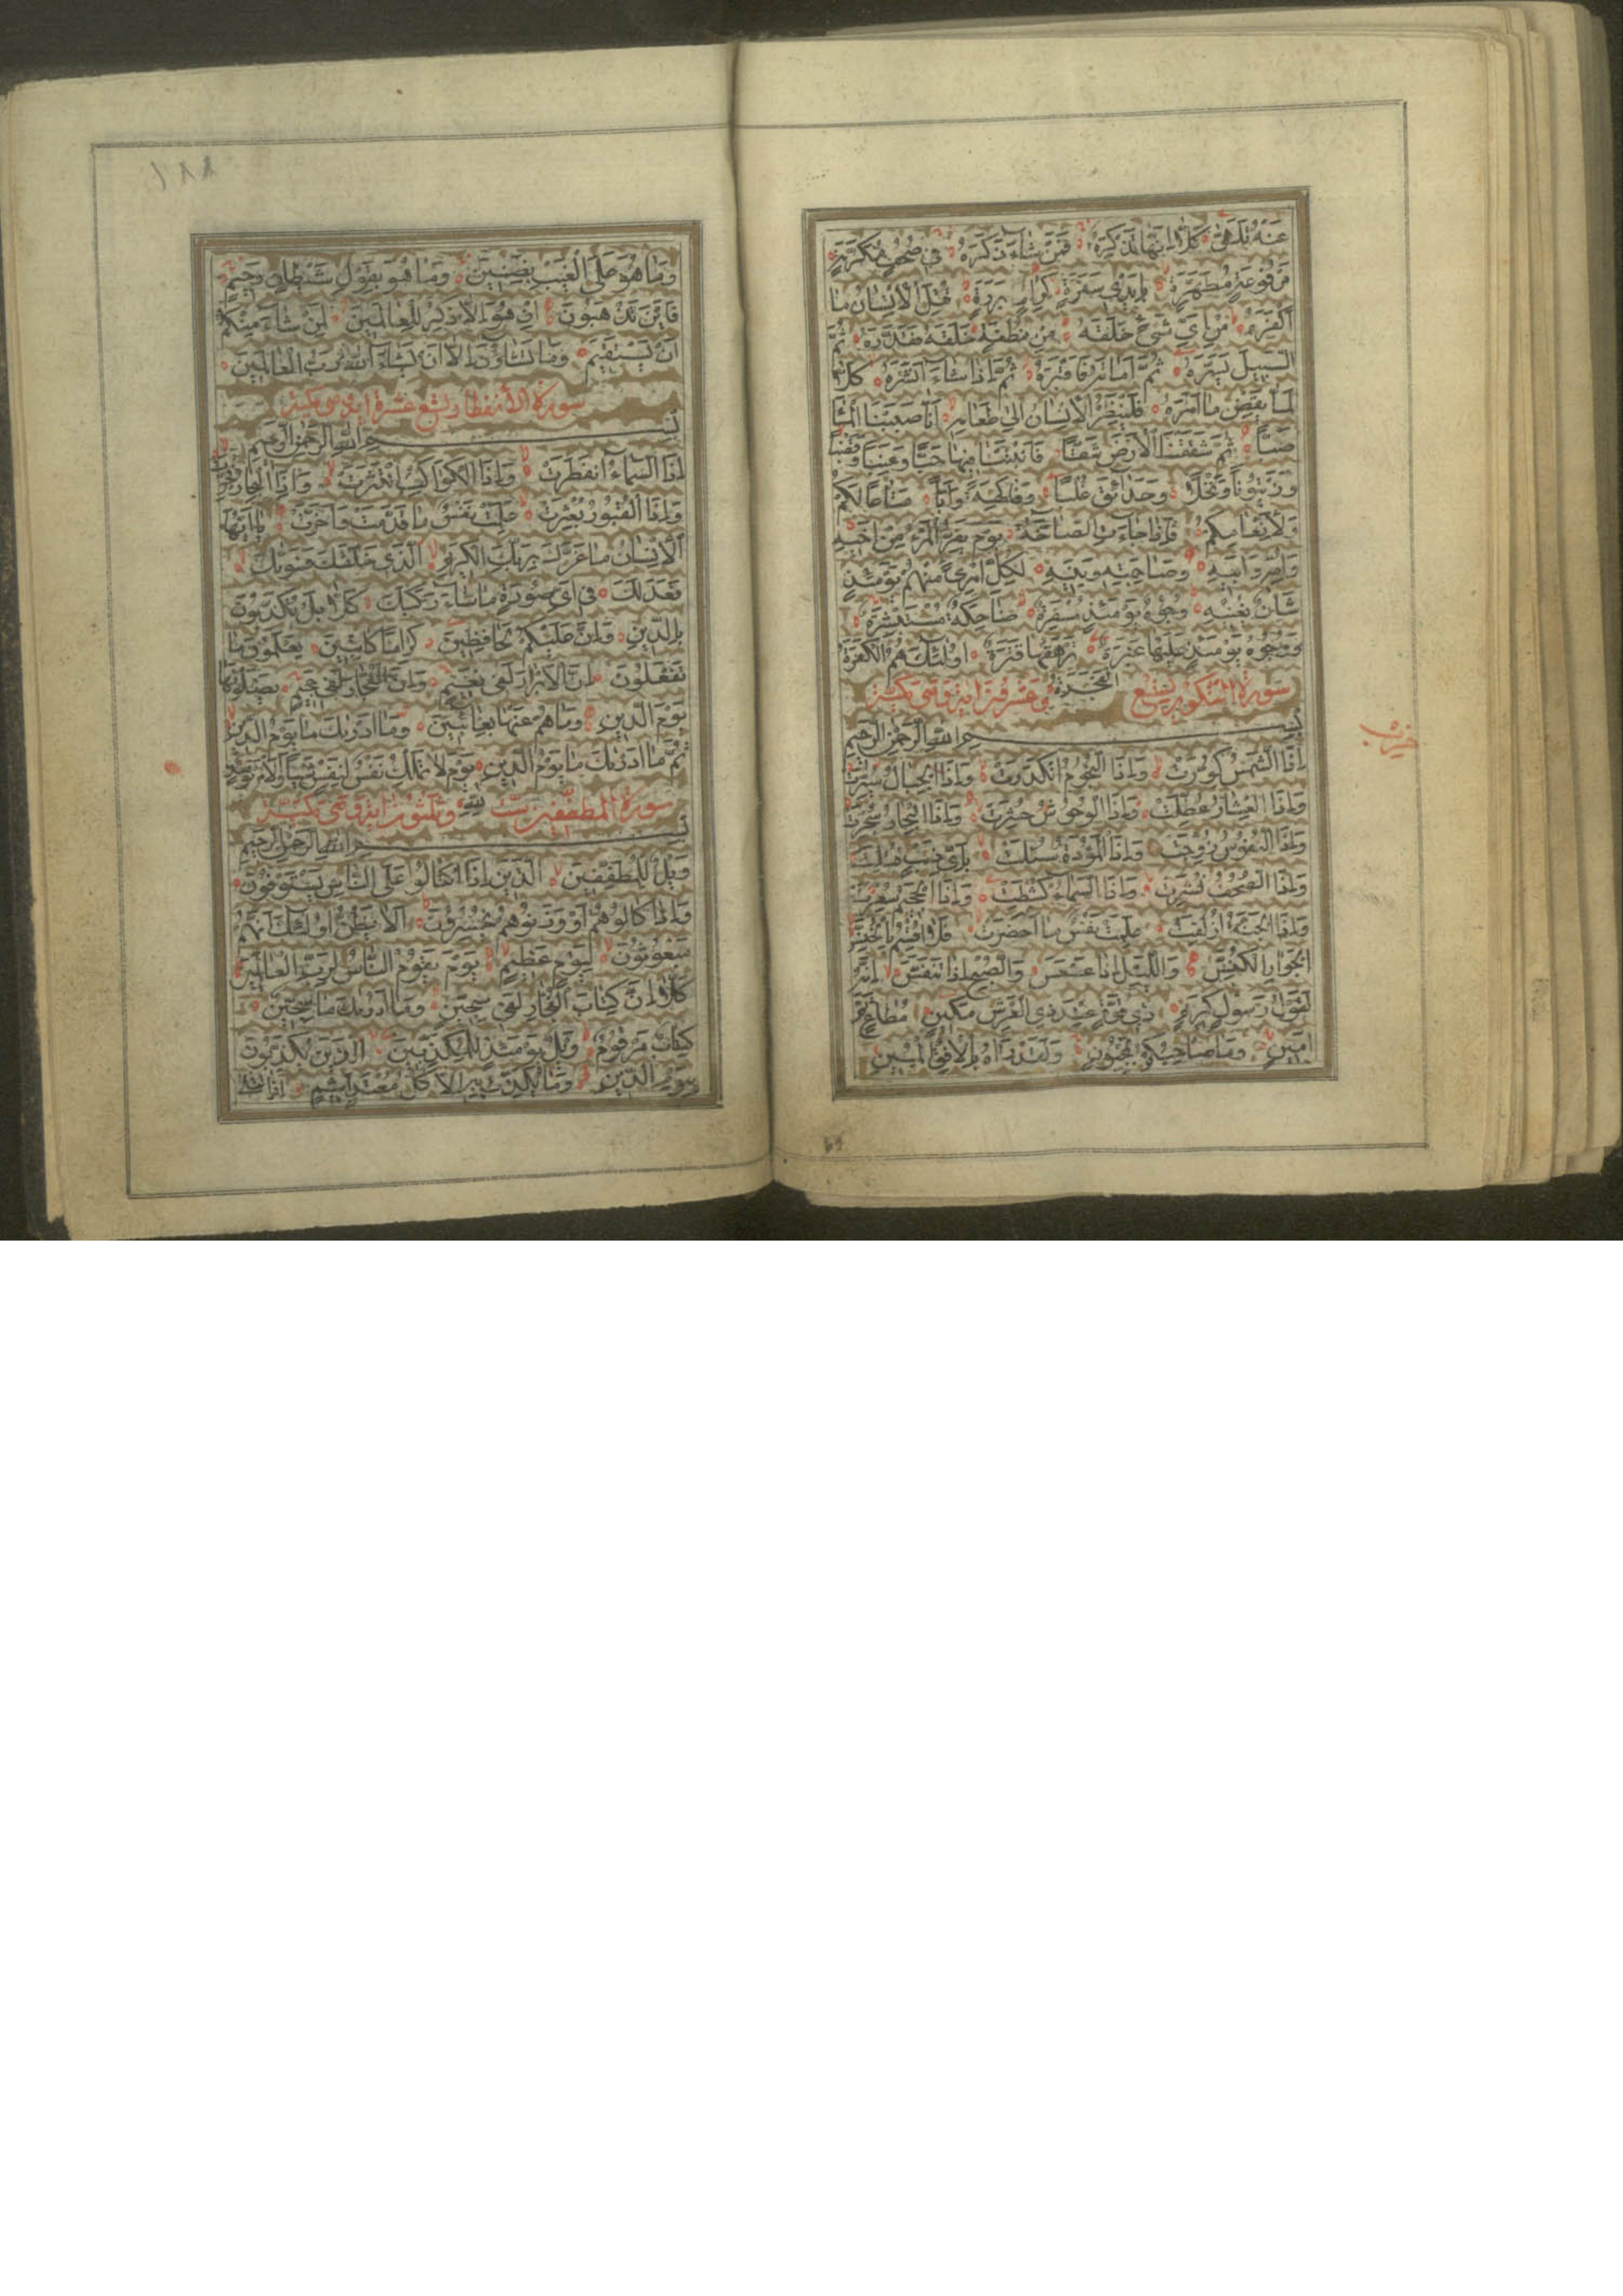 عَنْهُ تَلَهَّىٰ كَلَّا اِنَّهَا تَذْكِرَةٌ فَمَنْ شَاءَ ذَكَرَهُ فِي صُحُفٍ مُكَرَّمَةٍ
مَرْفُوعَةٍ مُطَهَّرَةٍ بِاَيْدِي سَفَرَةٍ كِرَامٍ بَرَرَةٍ قُتِلَ الْاِنْسَانُ مَا
اَكْفَرَهُ مِنْ اَيِّ شَيْءٍ خَلَقَهُ مِنْ نُطْفَةٍ خَلَقَهُ فَقَدَّرَهُ ثُمَّ
السَّبِيلَ يَسَّرَهُ ثُمَّ اَمَاتَهُ فَاَقْبَرَهُ ثُمَّ اِذَا شَاءَ اَنْشَرَهُ كَلَّا
لَمَّا يَقْضِ مَا اَمَرَهُ فَلْيَنْظُرِ الْاِنْسَانُ اِلَىٰ طَعَامِهِ اَنَّا صَبَبْنَا الْمَاءَ
صَبًّا ثُمَّ شَقَقْنَا الْاَرْضَ شَقًّا فَاَنْبَتْنَا فِيهَا حَبًّا وَعِنَبًا وَقَضْبًا
وَزَيْتُونًا وَنَخْلًا وَحَدَائِقَ غُلْبًا وَفَاكِهَةً وَاَبًّا مَتَاعًا لَكُمْ
وَلِاَنْعَامِكُمْ فَاِذَا جَاءَتِ الصَّاخَّةُ يَوْمَ يَفِرُّ الْمَرْءُ مِنْ اَخِيهِ
وَاُمِّهِ وَاَبِيهِ وَصَاحِبَتِهِ وَبَنِيهِ لِكُلِّ امْرِئٍ مِنْهُمْ يَوْمَئِذٍ
شَاْنٌ يُغْنِيهِ وُجُوهٌ يَوْمَئِذٍ مُسْفِرَةٌ ضَاحِكَةٌ مُسْتَبْشِرَةٌ
وَوُجُوهٌ يَوْمَئِذٍ عَلَيْهَا غَبَرَةٌ تَرْهَقُهَا قَتَرَةٌ اُولٰئِكَ هُمُ الْكَفَرَةُ
الْفَجَرَةُ
سورة التكوير تسع وعشرون اية وهي مكية
بسم الله الرحمن الرحيم
اِذَا الشَّمْسُ كُوِّرَتْ وَاِذَا النُّجُومُ انْكَدَرَتْ وَاِذَا الْجِبَالُ سُيِّرَتْ
وَاِذَا الْعِشَارُ عُطِّلَتْ وَاِذَا الْوُحُوشُ حُشِرَتْ وَاِذَا الْبِحَارُ سُجِّرَتْ
وَاِذَا النُّفُوسُ زُوِّجَتْ وَاِذَا الْمَوْؤُدَةُ سُئِلَتْ بِاَيِّ ذَنْبٍ قُتِلَتْ
وَاِذَا الصُّحُفُ نُشِرَتْ وَاِذَا السَّمَاءُ كُشِطَتْ وَاِذَا الْجَحِيمُ سُعِّرَتْ
وَاِذَا الْجَنَّةُ اُزْلِفَتْ عَلِمَتْ نَفْسٌ مَا اَحْضَرَتْ فَلَا اُقْسِمُ بِالْخُنَّسِ
الْجَوَارِ الْكُنَّسِ وَاللَّيْلِ اِذَا عَسْعَسَ وَالصُّبْحِ اِذَا تَنَفَّسَ اِنَّهُ
لَقَوْلُ رَسُولٍ كَرِيمٍ ذِي قُوَّةٍ عِنْدَ ذِي الْعَرْشِ مَكِينٍ مُطَاعٍ ثَمَّ
اَمِينٍ وَمَا صَاحِبُكُمْ بِمَجْنُونٍ وَلَقَدْ رَآهُ بِالْاُفُقِ الْمُبِينِ
حزب
١٨٨
وَمَا هُوَ عَلَى الْغَيْبِ بِضَنِينٍ وَمَا هُوَ بِقَوْلِ شَيْطَانٍ رَجِيمٍ
فَاَيْنَ تَذْهَبُونَ اِنْ هُوَ اِلَّا ذِكْرٌ لِلْعَالَمِينَ لِمَنْ شَاءَ مِنْكُمْ
اَنْ يَسْتَقِيمَ وَمَا تَشَاؤُنَ اِلَّا اَنْ يَشَاءَ اللّٰهُ رَبُّ الْعَالَمِينَ
سورة الانفطار تسع عشرة اية وهي مكية
بسم الله الرحمن الرحيم
اِذَا السَّمَاءُ انْفَطَرَتْ وَاِذَا الْكَوَاكِبُ انْتَثَرَتْ وَاِذَا الْبِحَارُ فُجِّرَتْ
وَاِذَا الْقُبُورُ بُعْثِرَتْ عَلِمَتْ نَفْسٌ مَا قَدَّمَتْ وَاَخَّرَتْ يَا اَيُّهَا
الْاِنْسَانُ مَا غَرَّكَ بِرَبِّكَ الْكَرِيمِ الَّذِي خَلَقَكَ فَسَوّٰيكَ
فَعَدَلَكَ فِي اَيِّ صُورَةٍ مَا شَاءَ رَكَّبَكَ كَلَّا بَلْ تُكَذِّبُونَ
بِالدِّينِ وَاِنَّ عَلَيْكُمْ لَحَافِظِينَ كِرَامًا كَاتِبِينَ يَعْلَمُونَ مَا
تَفْعَلُونَ اِنَّ الْاَبْرَارَ لَفِي نَعِيمٍ وَاِنَّ الْفُجَّارَ لَفِي جَحِيمٍ يَصْلَوْنَهَا
يَوْمَ الدِّينِ وَمَا هُمْ عَنْهَا بِغَائِبِينَ وَمَا اَدْرٰيكَ مَا يَوْمُ الدِّينِ
ثُمَّ مَا اَدْرٰيكَ مَا يَوْمُ الدِّينِ يَوْمَ لَا تَمْلِكُ نَفْسٌ لِنَفْسٍ شَيْئًا وَالْاَمْرُ يَوْمَئِذٍ
لِلّٰهِ
سورة المطففين ست وثلثون اية وهي مكية
بسم الله الرحمن الرحيم
وَيْلٌ لِلْمُطَفِّفِينَ الَّذِينَ اِذَا اكْتَالُوا عَلَى النَّاسِ يَسْتَوْفُونَ
وَاِذَا كَالُوهُمْ اَوْ وَزَنُوهُمْ يُخْسِرُونَ اَلَا يَظُنُّ اُولٰئِكَ اَنَّهُمْ
مَبْعُوثُونَ لِيَوْمٍ عَظِيمٍ يَوْمَ يَقُومُ النَّاسُ لِرَبِّ الْعَالَمِينَ
كَلَّا اِنَّ كِتَابَ الْفُجَّارِ لَفِي سِجِّينٍ وَمَا اَدْرٰيكَ مَا سِجِّينٌ
كِتَابٌ مَرْقُومٌ وَيْلٌ يَوْمَئِذٍ لِلْمُكَذِّبِينَ الَّذِينَ يُكَذِّبُونَ
بِيَوْمِ الدِّينِ وَمَا يُكَذِّبُ بِهِ اِلَّا كُلُّ مُعْتَدٍ اَثِيمٍ اِذَا تُتْلٰى